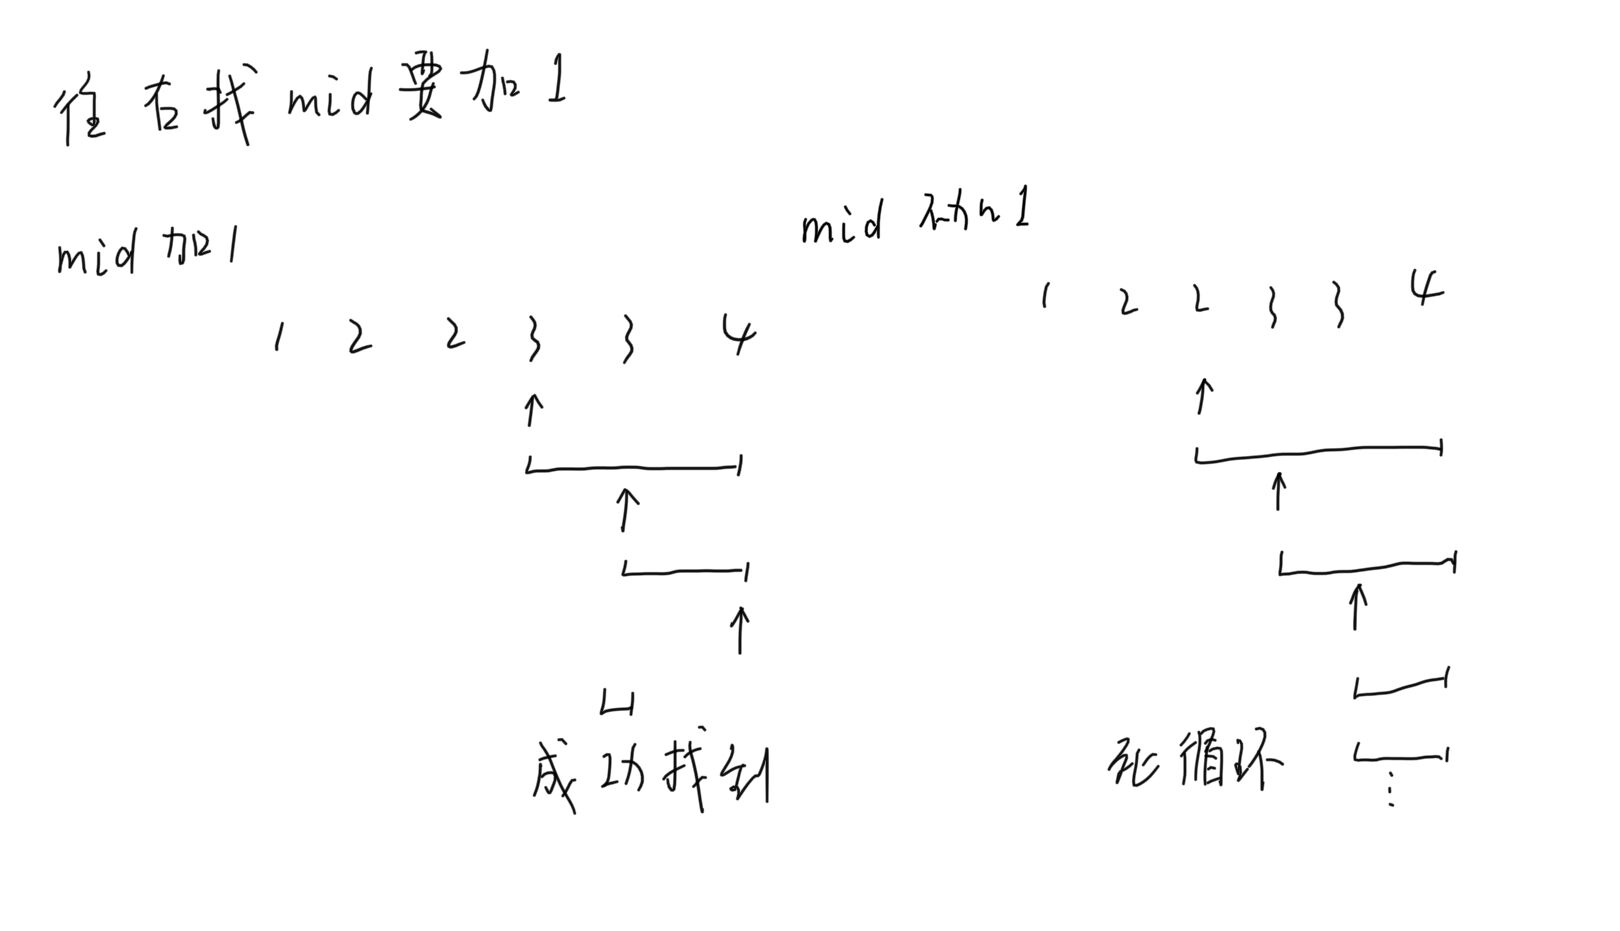 往右找mid要加1
mid 加1
1 2 2 3 3 4
成功找到
mid 不加1
1 2 2 3 3 4
死循环